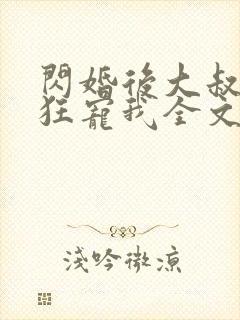 閃婚後大叔
狂寵我全文
淺吟微涼